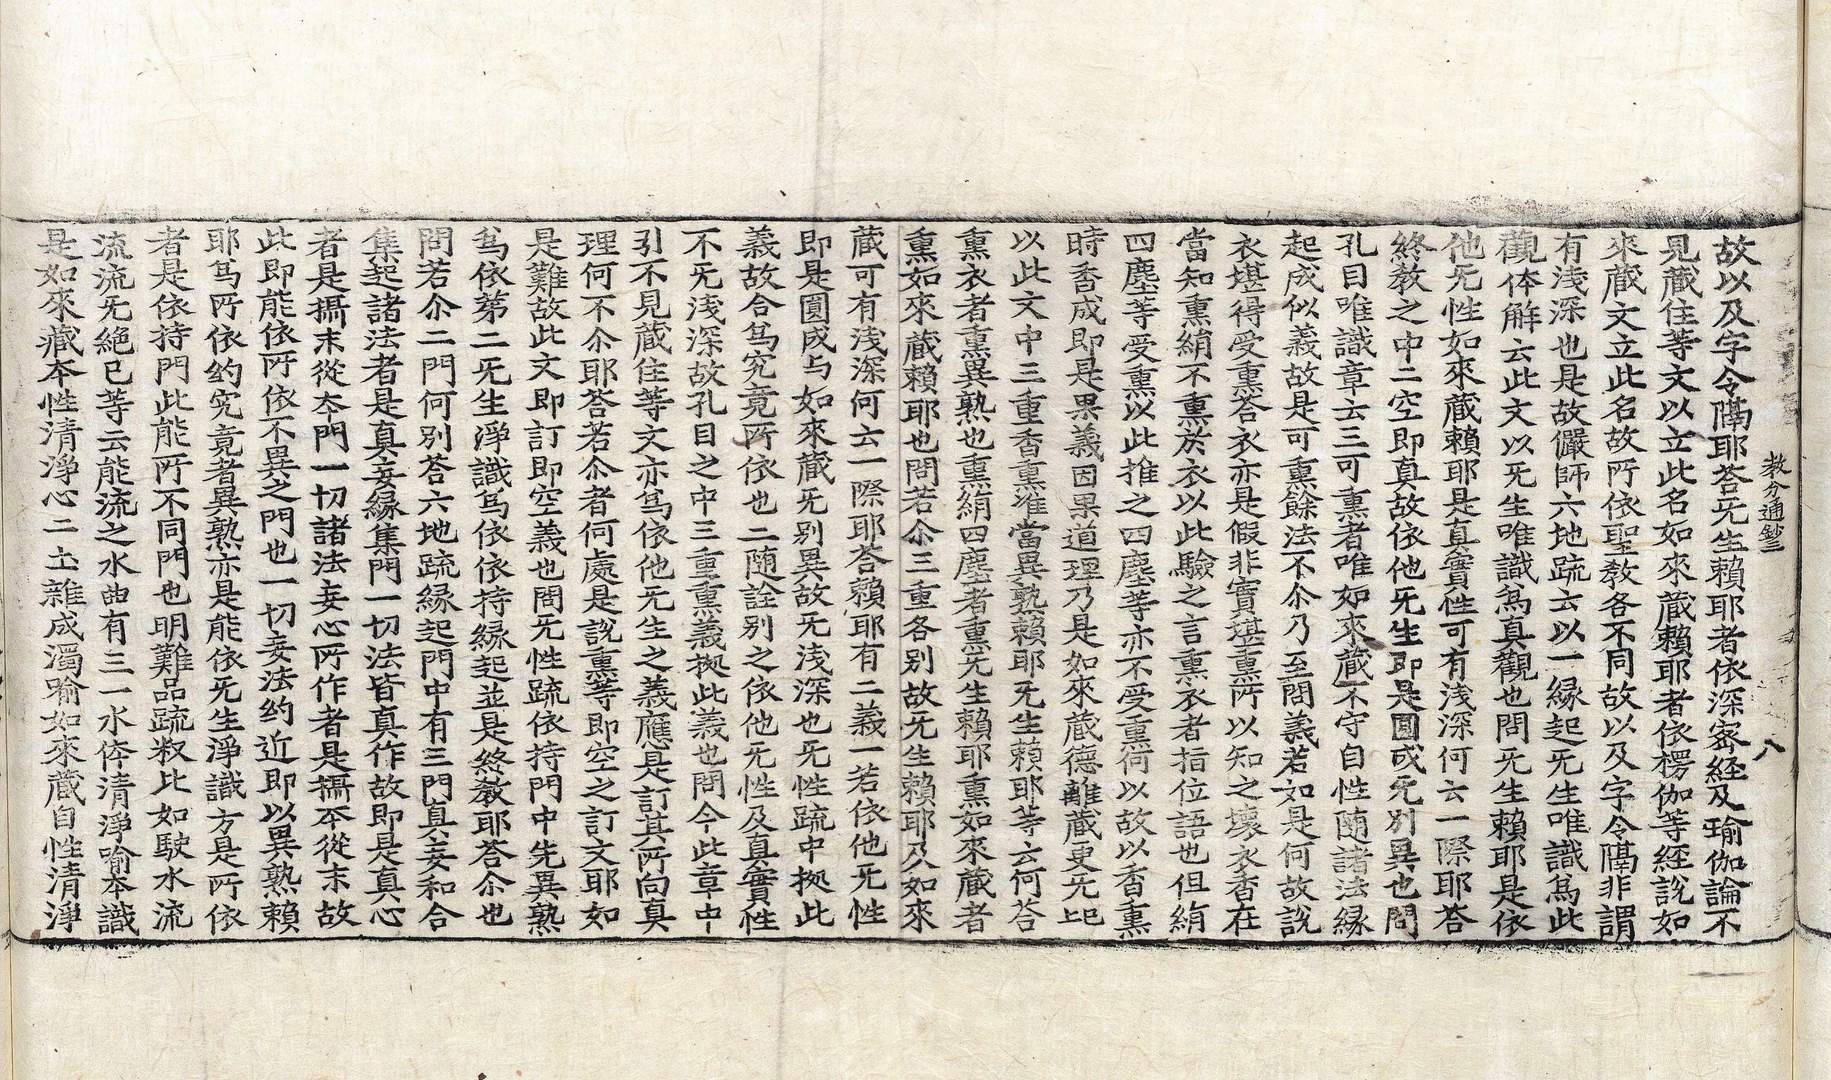 教分通鈔三
八
故以及字令隔耶荅旡生賴耶者依深密經及瑜伽論不
見蔵住等文以立此名如來蔵賴耶者依楞伽等經說如
來蔵文立此名故所依聖敎各不同故以及字令隔非謂
有浅深也是故儼師六地䟽云以一縁起旡生唯識爲此
觀体解云此文以旡生唯識爲真觀也問旡生賴耶是依
他旡性如來蔵賴耶是真實性可有浅深何云一際耶荅
終敎之中二空即真故依他旡生即是圓成旡別異也問
孔目唯識章云三可熏者唯如來蔵不守自性随諸法縁
起成似義故是可熏餘法不尒乃至問義若如是何故說
衣堪得受熏荅衣亦是假非實堪熏所以知之壊衣香在
當知熏絹不熏於衣以此驗之言熏衣者指位語也但絹
四塵等受熏以此推之四塵等亦不受熏何以故以香熏
時香成即是果義因果道理乃是如來蔵德離蔵更旡
以此文中三重香熏准當異熟賴耶旡生賴耶等云何荅
熏衣者熏異熟也熏絹四塵者熏旡生賴耶熏如來蔵者
熏如來蔵賴耶也問若尒三重各別故旡生賴耶及如來
蔵可有浅深何云一際耶荅賴耶有二義一若依他旡性
即是圓成与如來蔵旡別異故旡浅深也旡性䟽中拠此
義故合爲究竟所依也二随詮別之依他旡性及真實性
不旡浅深故孔目之中三重熏義拠此義也問今此章中
引不見蔵住等文亦爲依他旡生之義應是訂其所向真
理何不尒耶荅若尒者何處是說熏等即空之訂文耶如
是難故此文即訂即空義也問旡性䟽依持門中先異熟
爲依第二旡生淨識爲依依持縁起並是終敎耶荅尒也
問若尒二門何別荅六地䟽縁起門中有三門真妄和合
集起諸法者是真妄縁集門一切法皆真作故即是真心
者是攝末從本門一切諸法妄心所作者是攝本從末故
此即能依所依不異之門也一切妄法约近即以異熟賴
耶爲所依约究竟者異熟亦是能依旡生淨識方是所依
者是依持門此能所不同門也明難品䟽叙比如駛水流
流流旡絶已等云能流之水曲有三一水体清淨喻本識
是如來藏本性清淨心二土雜成濁喻如來蔵自性清淨